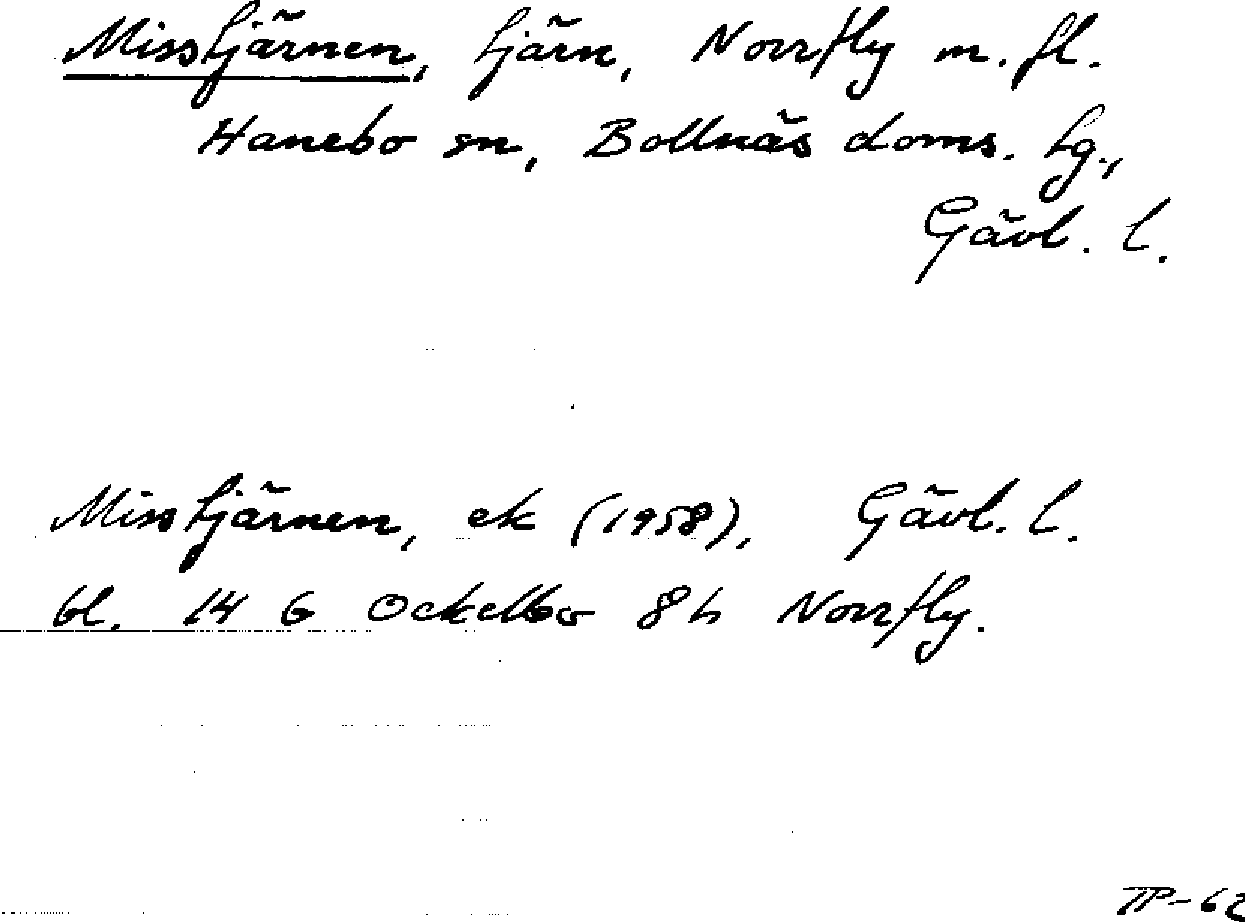 Misstjärnen, tjärn, Norrfly m. fl.
Hanebo sn, Bollnäs doms. tg.,
Gävl. l.
Misstjärnen, ek (1958), Gävl. l.
bl. 14 G Ockelbo 8h Norrfly.
TP-62